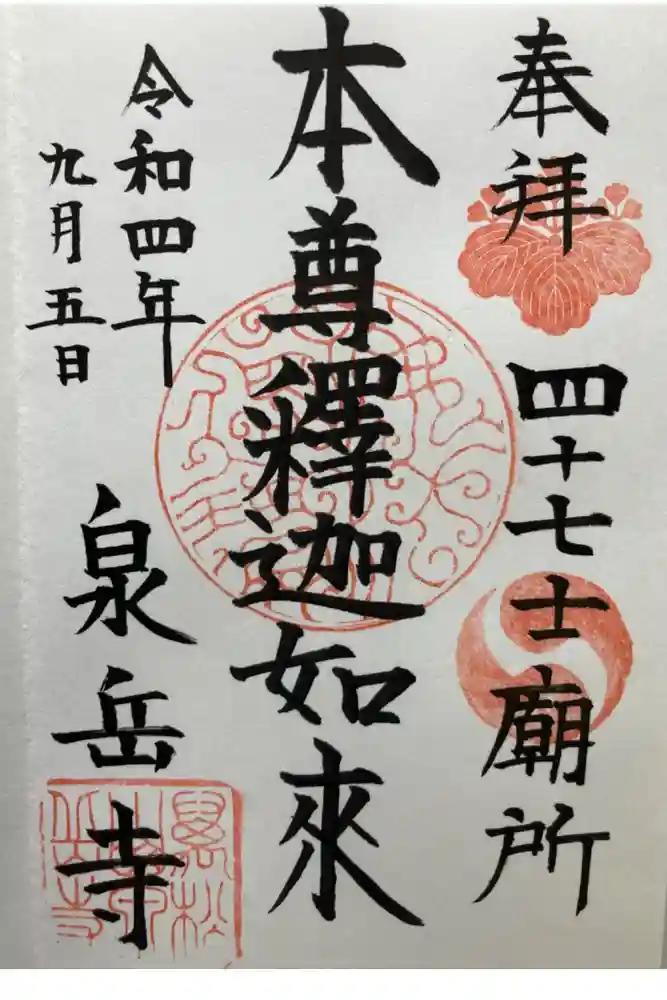 奉拝
四十七士廟所
本尊釋迦如來
令和四年
九月五日
泉岳寺